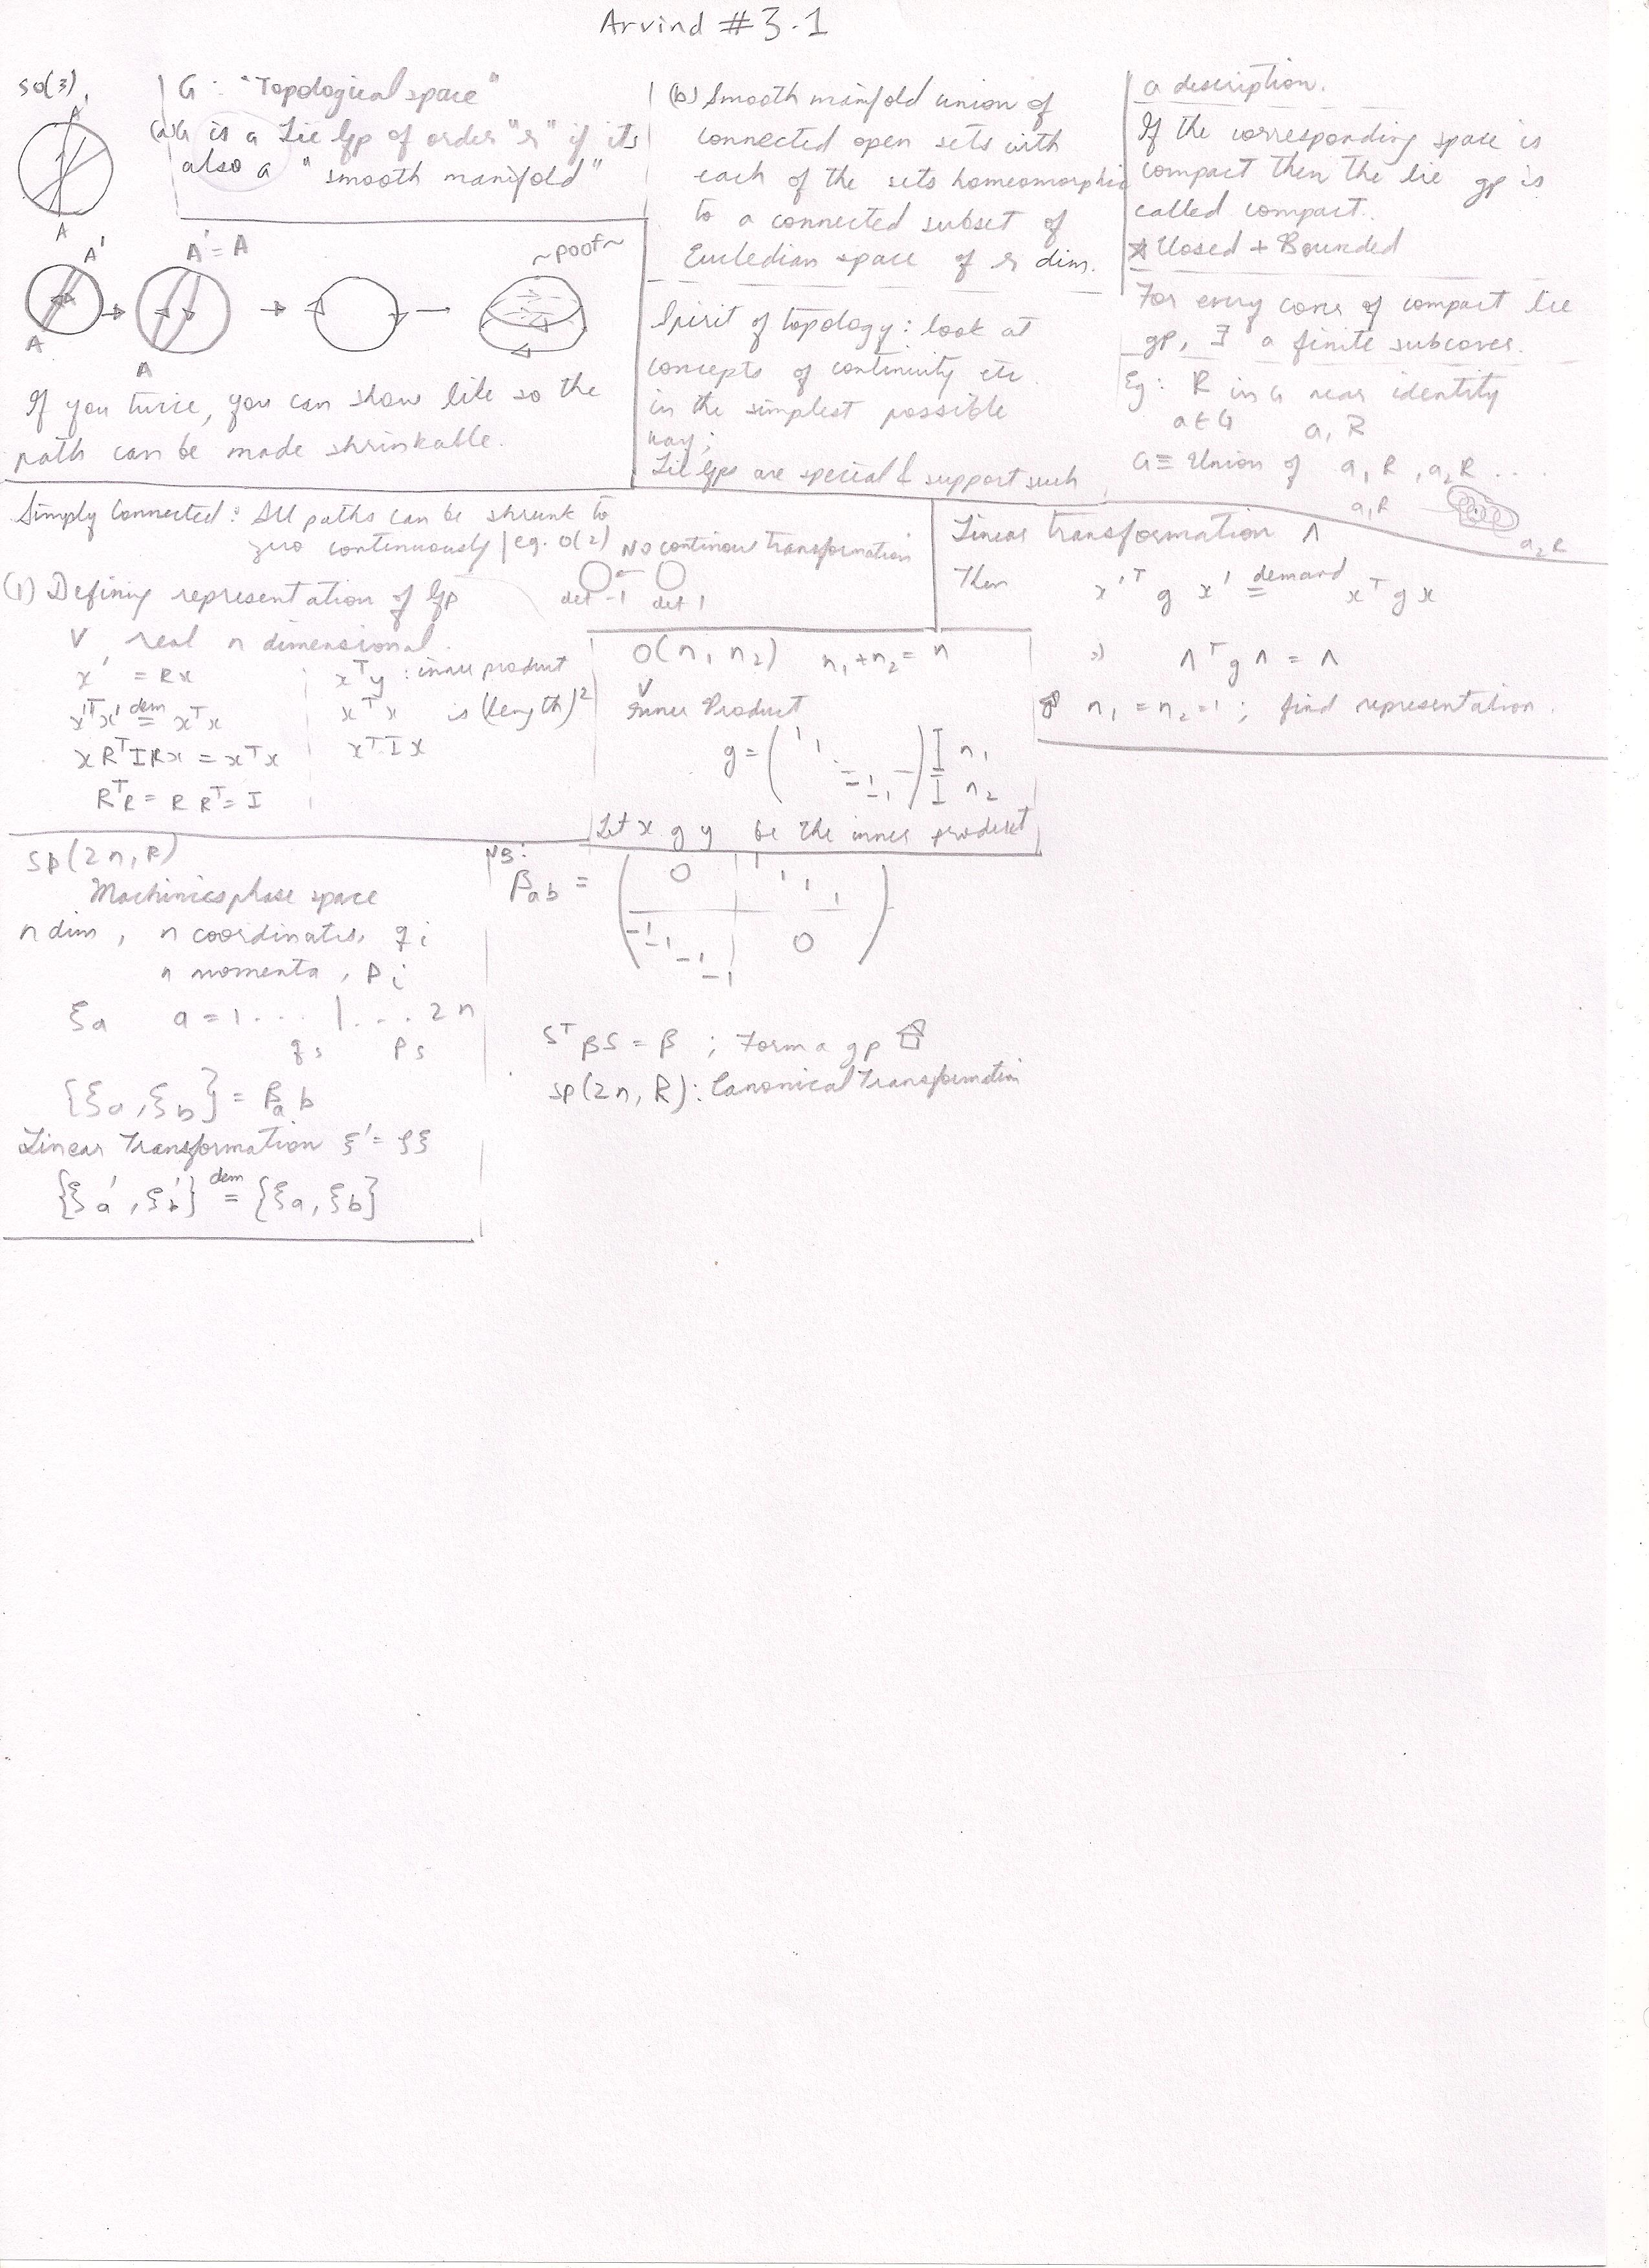 Arvind #3.1
SO(3)
A'
A
G : "Topological space"
(a) G is a Lie Gp of order "r" if its
also a "smooth manifold"
A'
A
A' = A
A
~poof~
If you twice, you can show like so the
path can be made shrinkable.
(b) Smooth manifold union of
connected open sets with
each of the sets homeomorphic
to a connected subset of
Eucledian space of r dim.
Spirit of topology: look at
concepts of continuity etc.
in the simplest possible
way;
Lie Gps are special & support such
a description.
If the corresponding space is
compact then the lie gp is
called compact.
* Closed + Bounded
For every cover of compact lie
gp, ∃ a finite subcover.
Eg: R in G near identity
a ∈ G a, R
G ≡ Union of a₁R, a₂R ...
a₁R
a₂R
Simply Connected: All paths can be shrunk to
zero continuously | eg. O(2) No continous transformation
det -1 det 1
(1) Defining representation of Gp
V real n dimensional
x' = Rx
x'ᵀx' dem= xᵀx
xRᵀIRx = xᵀx
RᵀR = RRᵀ = I
xᵀy : inner product
xᵀx is (length)²
xᵀIx
O(n₁ n₂) n₁+n₂ = n
V
Inner Product
g = ( 1 1 -1 -1 ) I n₁
I n₂
Let x g y be the inner product
Linear transformation Λ
Then x'ᵀ g x' demand= xᵀ g x
⇒ Λᵀ g Λ = Λ
n₁ = n₂ = 1 ; find representation.
Sp(2n, R)
Machinics phase space
n dim, n coordinates, qi
n momenta, pi
ξa a = 1 ... | ... 2n
qs ps
{ξa, ξb} = βab
Linear Transformation ξ' = Sξ
{ξa', ξb'} dem= {ξa, ξb}
NB:
βab = ( 0 1 1 1 1
-1 -1 -1 -1 0 )
SᵀβS = β ; Form a gp
Sp(2n, R): Canonical Transformation